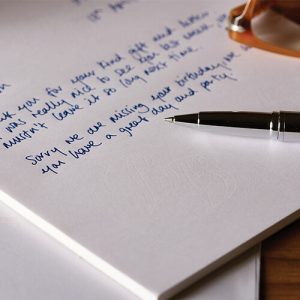 18th April
n
k you for your kind gift and letter.
t was really nice to see you last week. We
mustn't leave it so long next time.
Sorry we are missing your birthday, we
you have a great day and party.